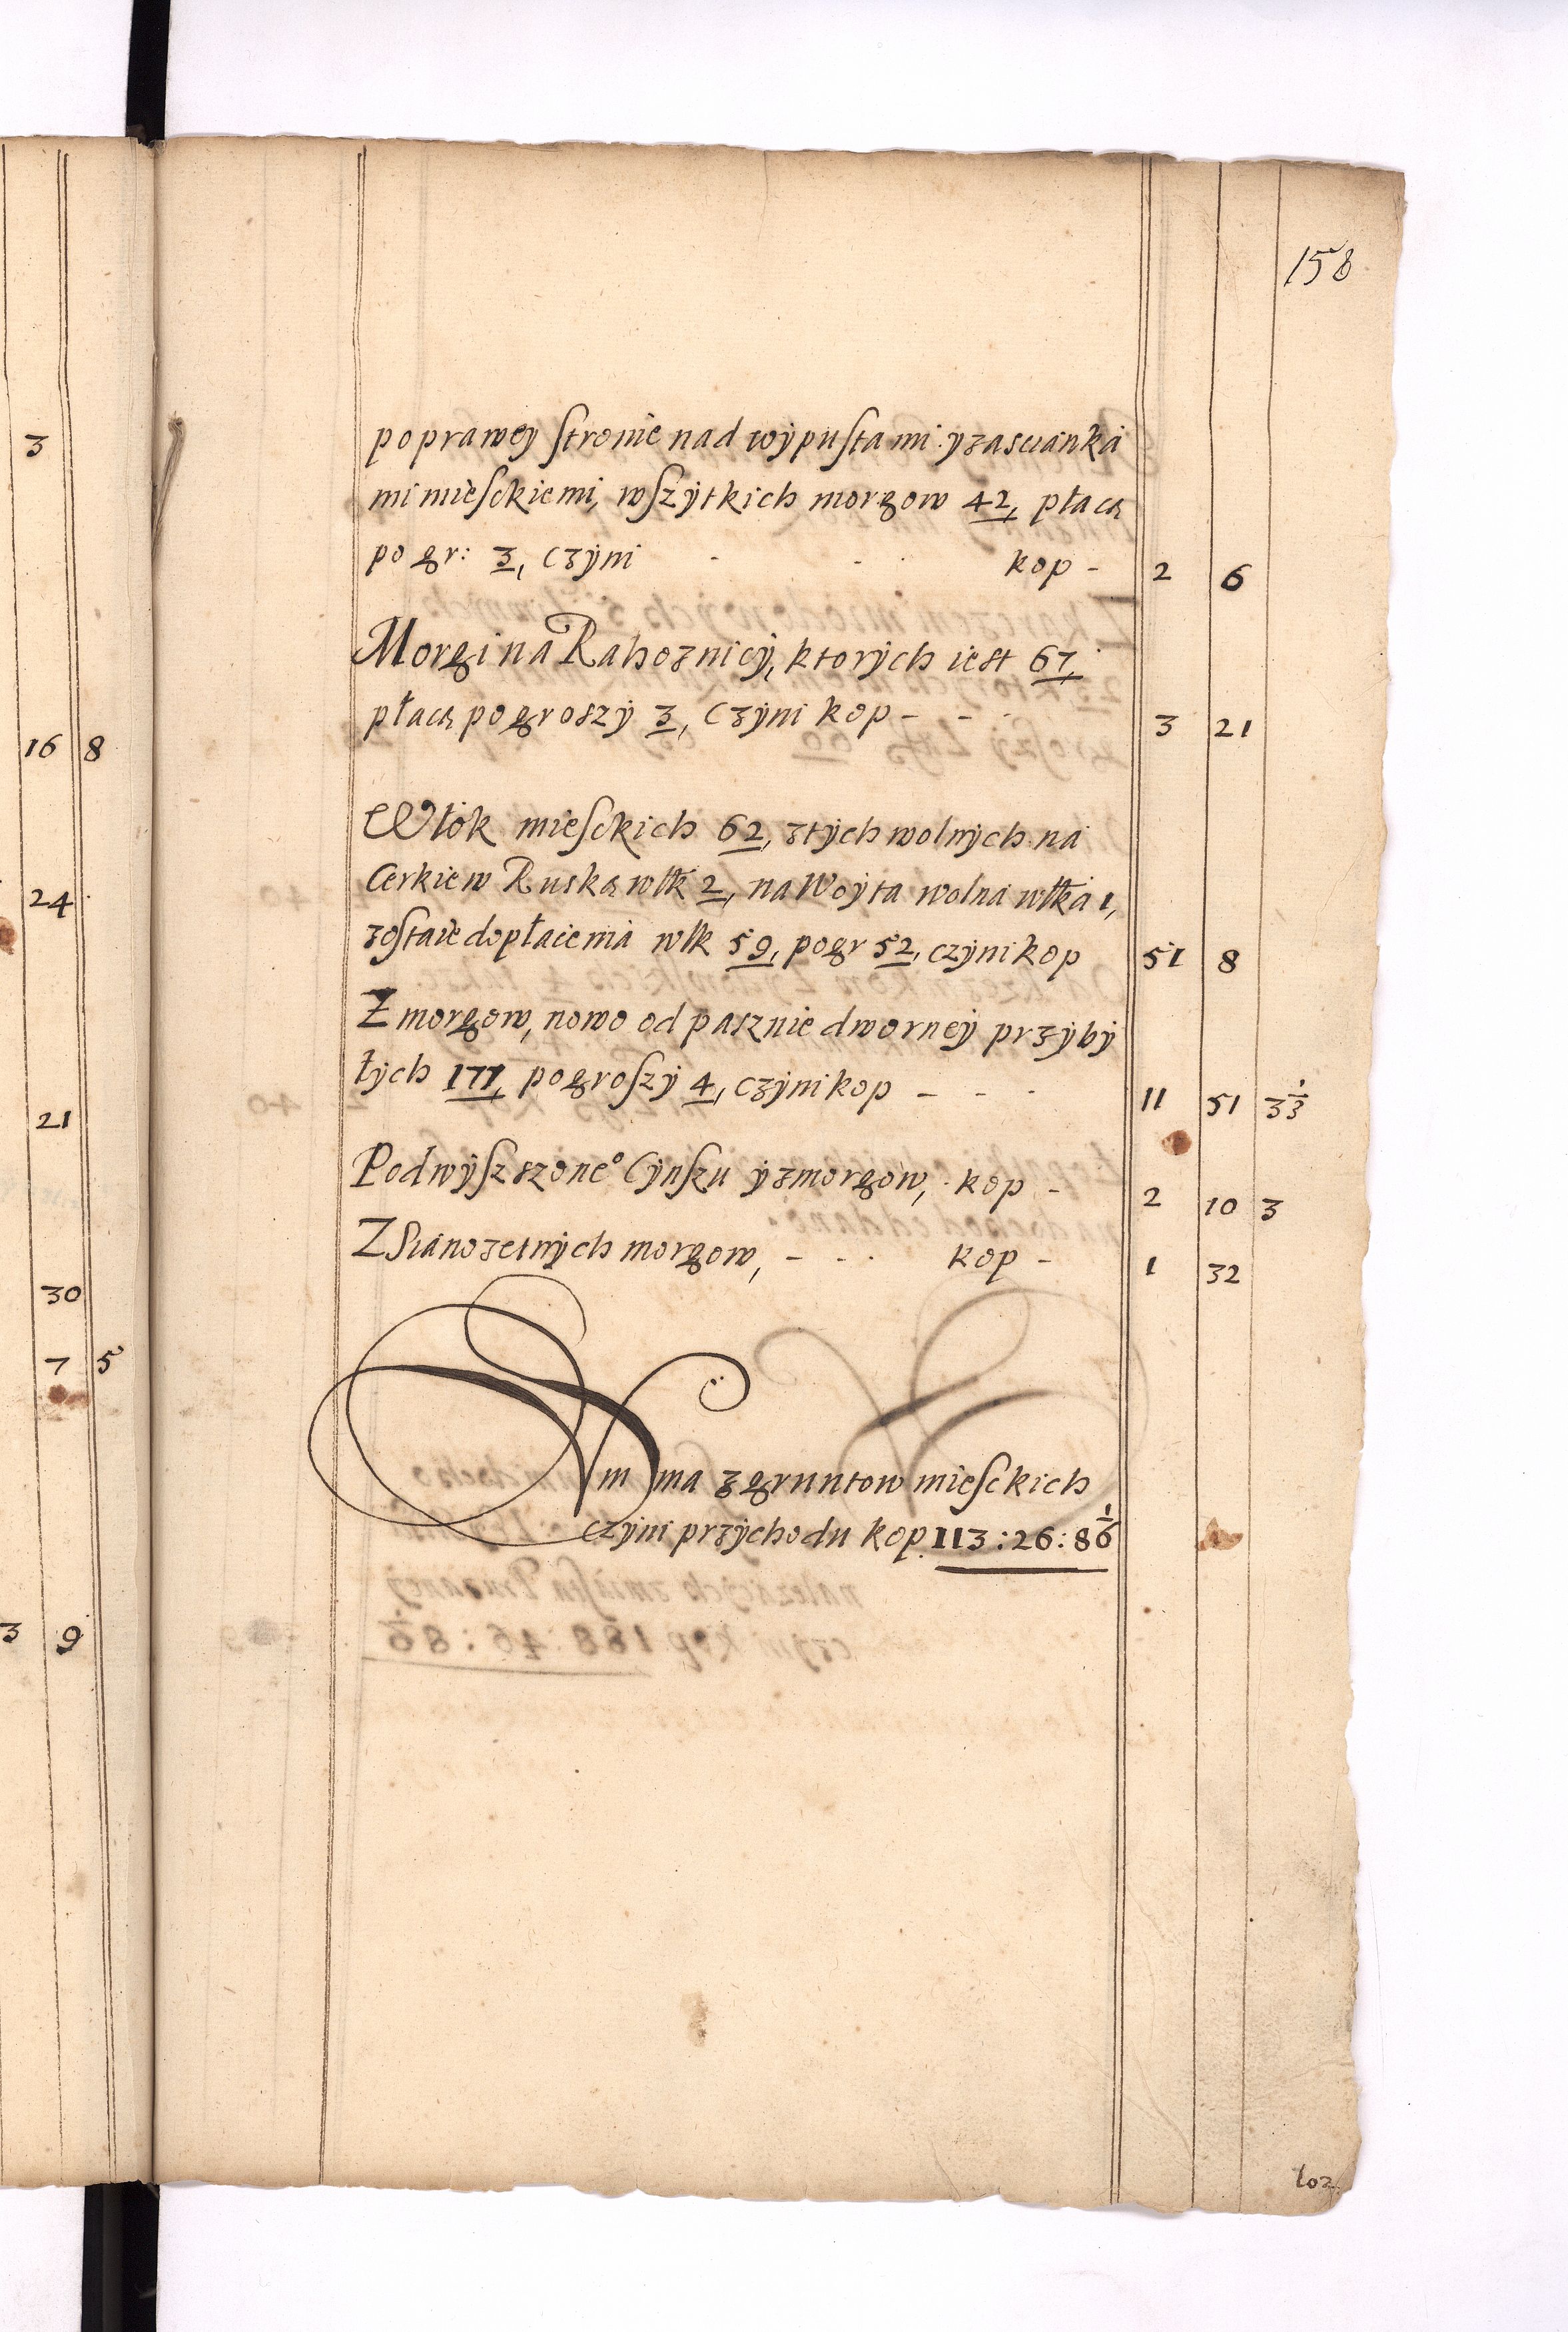 3
16 8
24
21
30
7 5
3 9
158
po prawey stronie nad wypustami y zascianka
mi miesckiemi, wszytkich morgow 42, płacą
po gr: 3, czyni - - - kop - 2 6
Morgi na Rahoznicy, ktorych iest 67,
płacą po groszy 3, czyni kop - - - 3 21
Włok miesckich 62, z tych wolnych na
Cerkiew Ruską włk 2, na Woyta wolna włka 1,
zostaie do płacienia włk 59, po gr 52, czyni kop 51 8
Z morgow, nowo od pasznie dworney przyby
łych 177, po groszy 4, czyni kop - - - 11 51 3 1/3
Podwyszszone° Cynszu y z morgow, kop - 2 10 3
Z Sianozetnych morgow, - - - kop - 1 32
Summa z gruntow miesckich
czyni przychodu kop 113 : 26 : 8 1/6
loz